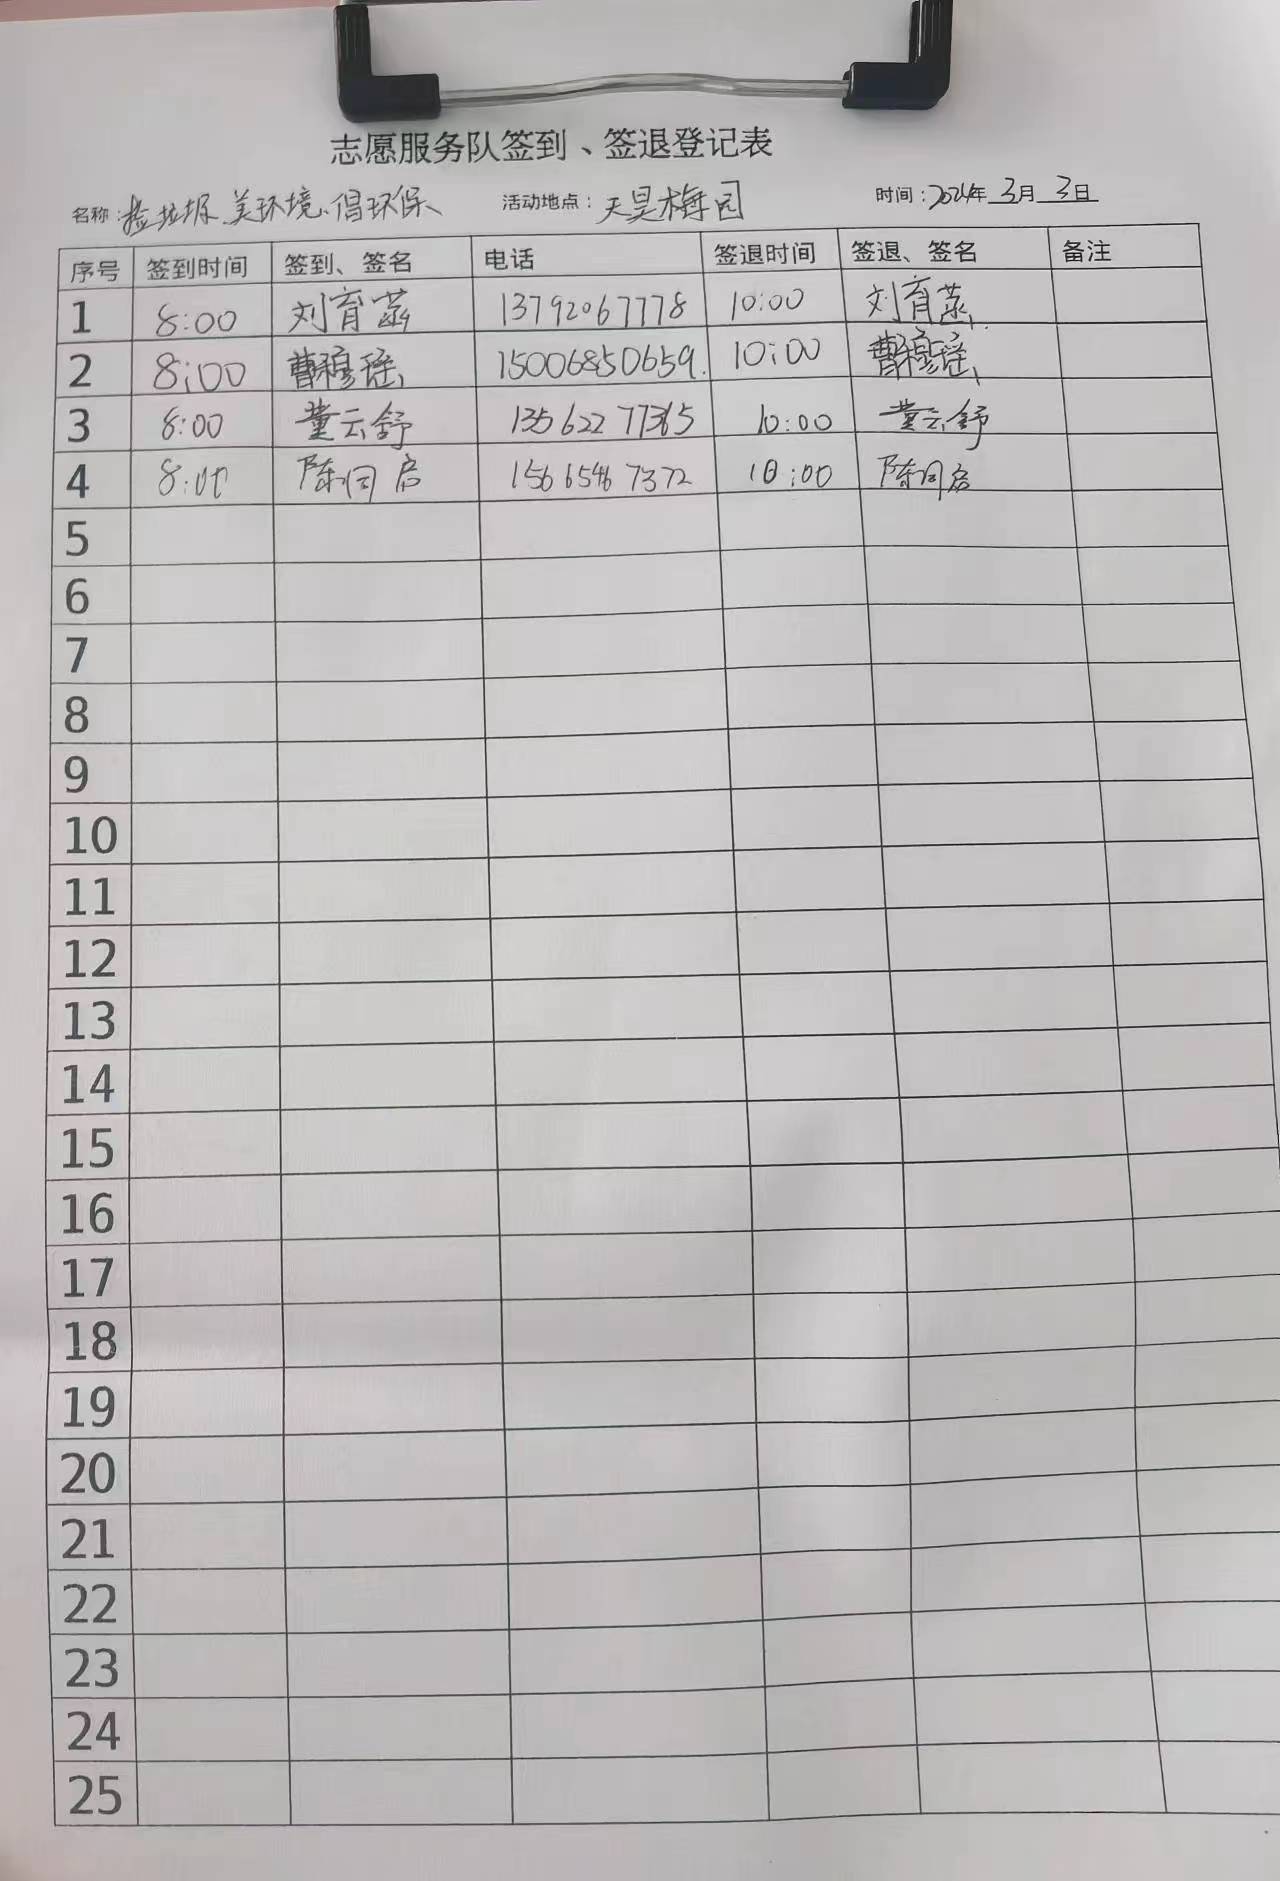 志愿服务队签到、签退登记表
名称:捡垃圾、美环境、倡环保 活动地点:天昊梅园 时间:2024年 3月 3日
序号 签到时间 签到、签名 电话 签退时间 签退、签名 备注
1 8:00 刘育菡 13792067778 10:00 刘育菡
2 8:00 曹穆瑶 15006850659. 10:00 曹穆瑶
3 8:00 董云舒 13562277365 10:00 董云舒
4 8:00 陈同启 10:00 陈同启
5
6
7
8
9
10
11
12
13
14
15
16
17
18
19
20
21
22
23
24
25